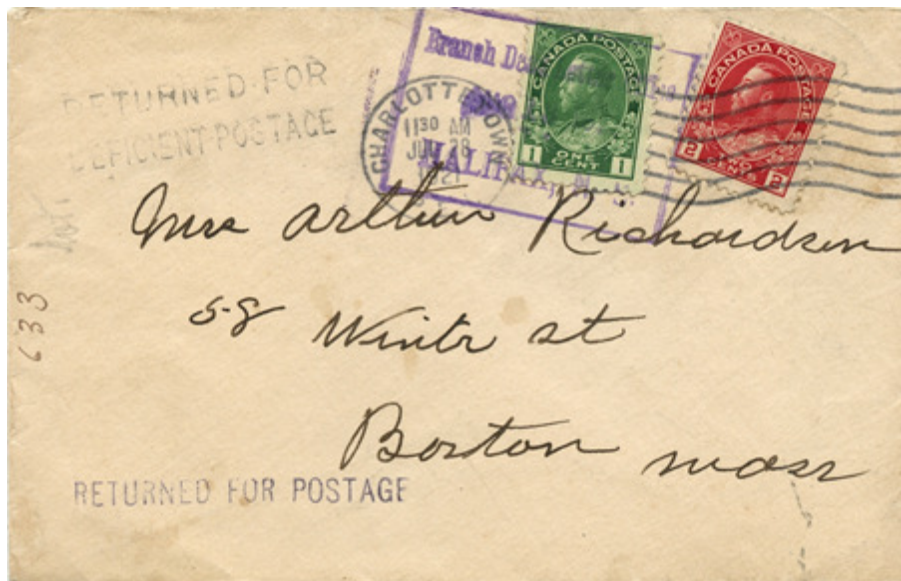 RETURNED FOR
DEFICIENT POSTAGE
Branch
CHARLOTTETOWN
1130 AM
1921
HALIFAX, N. S.
CANADA POSTAGE
1 ONE CENT 1
CANADA POSTAGE
2 TWO CENTS 2
Mrs Arthur Richardson
58 Wintr st
Boston mass
RETURNED FOR POSTAGE
633